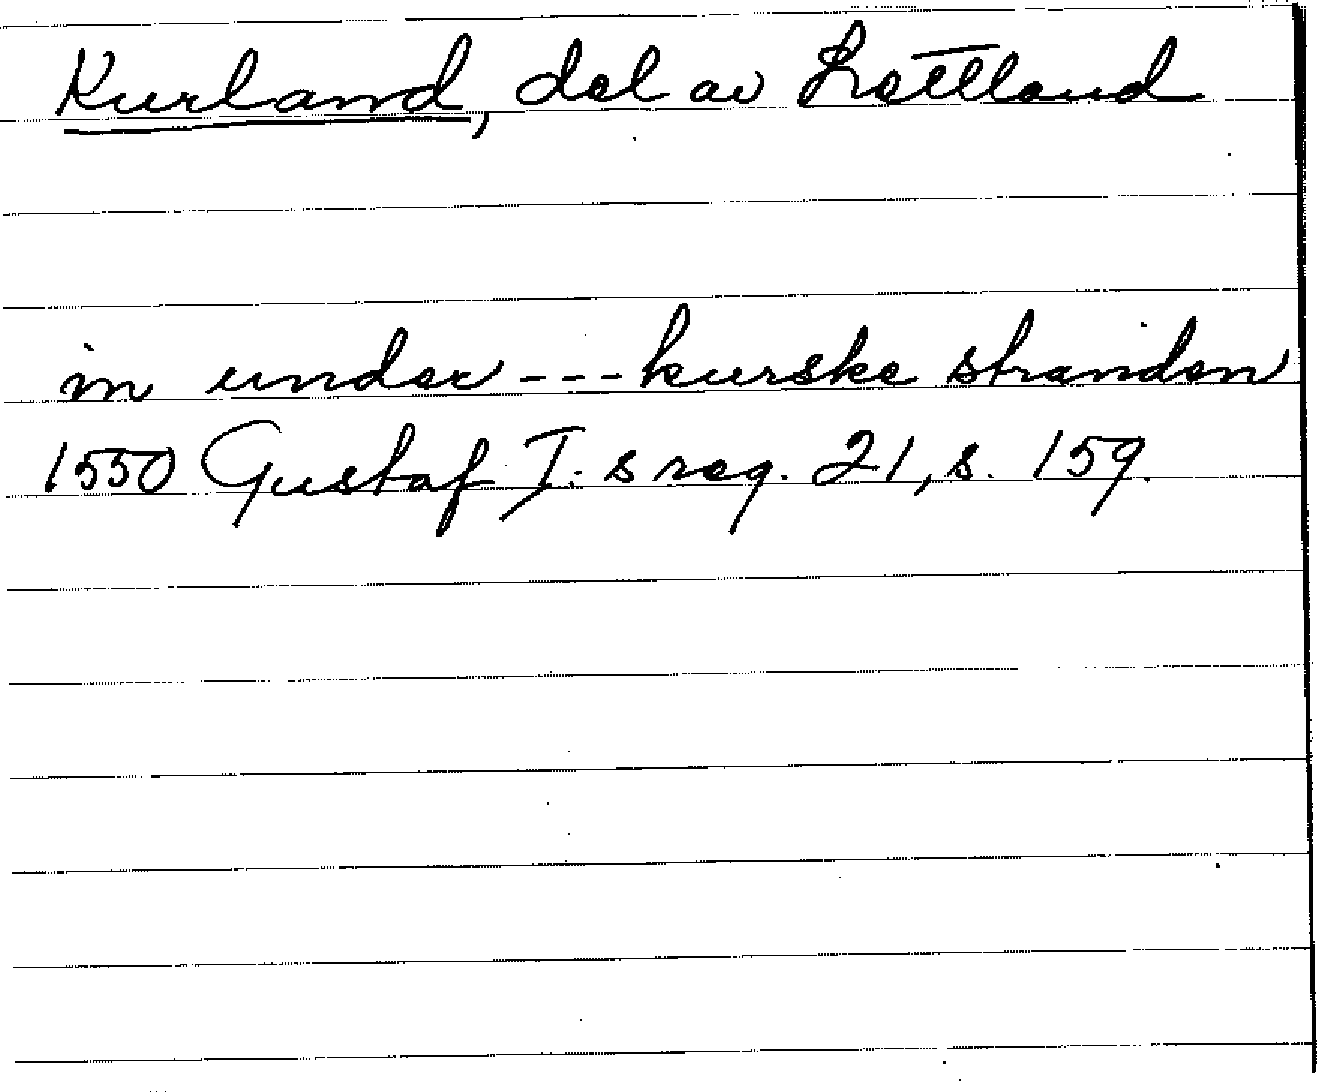 Kurland, del av Lettland
in under --- kurske stranden
1550 Gustaf I:s reg. 21, s. 159.